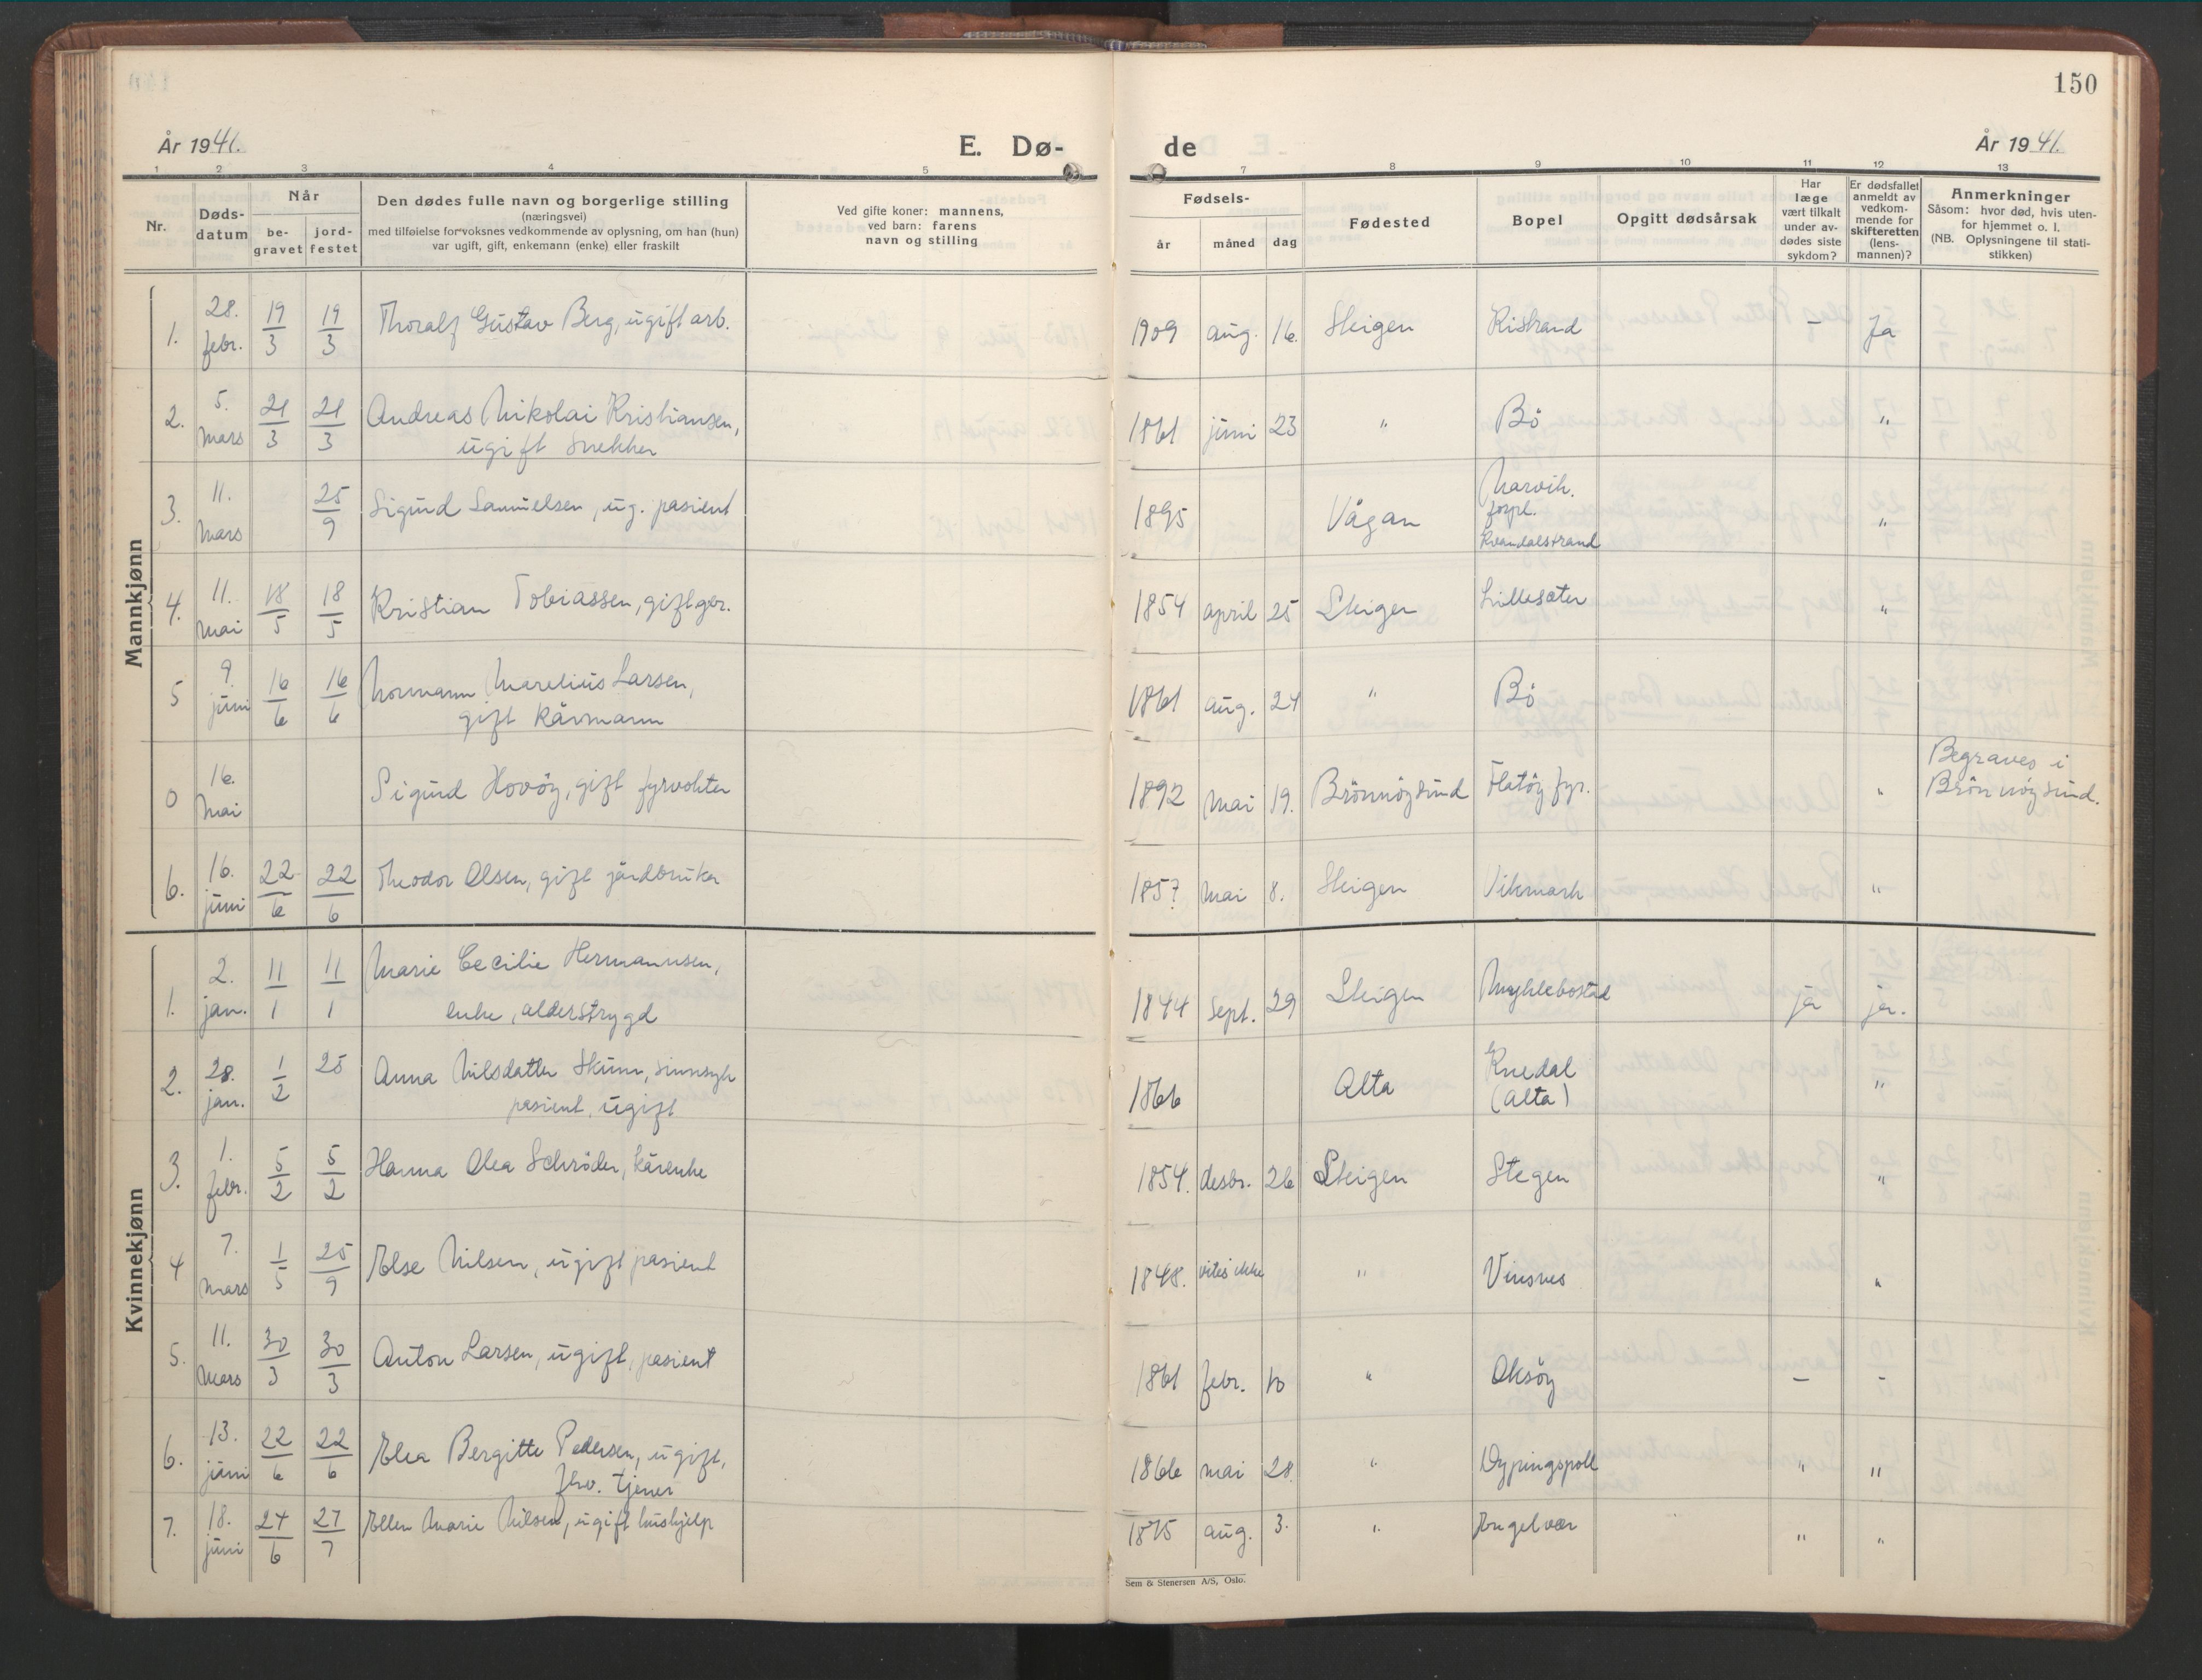 150
År 1941.
E. Dø-
de
År 1941.
1 2 3 4 5 7 8 9 10 11 12 13
Nr.
Døds-
datum
Når
be-
gravet
jord-
festet
Den dødes fulle navn og borgerlige stilling
(næringsvei)
med tilføielse for voksnes vedkommende av oplysning, om han (hun)
var ugift, gift, enkemann (enke) eller fraskilt
Ved gifte koner: mannens,
ved barn: farens
navn og stilling
Fødsels-
år måned dag
Fødested
Bopel
Opgitt dødsårsak
Har
læge
vært tilkalt
under av-
dødes siste
sykdom?
Er dødsfallet
anmeldt av
vedkom-
mende for
skifteretten
(lens-
mannen)?
Anmerkninger
Såsom: hvor død, hvis uten-
for hjemmet o. l.
(NB. Oplysningene til stati-
stikken)
Mannkjønn
1. 28. febr. 19/3 19/3 Thoralf Gustav Berg, ugift arb. 1909 aug. 16. Steigen Ristrand - Ja
2. 5. mars 21/3 21/3 Andreas Nikolai Kristiansen, 1861 juni 23 " Bö "
ugift snekker
3. 11. mars 25/9 Sigurd Samuelsen, ug. pasient 1895 Vågan Narvik. "
forpl.
Kvandalstrand
4. 11. mai 18/5 18/5 Kristian Tobiassen, gift gbr. 1854 april 25 Steigen Lillesæter "
5 9. juni 16/6 16/6 Normann Marelius Larsen, 1861 aug. 24 " Bö
gift kårmann
0 16. mai Sigurd Hovöy, gift fyrvokter 1892 mai 19. Brönnöysund Flatöy fyr. " Begraves i
Brönnöysund.
6. 16. juni 22/6 22/6 Theodor Olsen, gift jordbruker 1857 mai 8. Steigen Vikmark "
Kvinnekjønn
1. 2. jan. 11/1 11/1 Marie Cecilie Hermannsen, 1844 sept. 29 Steigen Myklebostad ja ja.
enke, alderstrygd
2. 28. jan. 1/2 25 Anna Nilsdatter Skum, sinnsyk 1866 Alta "
pasient, ugift (Alta)
3. 1. febr. 5/2 5/2 Hanna Olea Schröder, kårenke 1854. desbr. 26 Steigen Stegen "
4 7. mars 1/5 25/9 Else Nilsen, ugift pasient 1848. vites ikke " Vinsnes "
5. 11. mars 30/3 30/3 Anton Larsen, ugift, pasient 1861 febr. 10 " Oksöy - -
6. 13. juni 22/6 22/6 Elea Bergitte Pedersen, ugift, 1866 mai 28 " Dypingspoll " "
fhv. tjener
7. 18. juni 27/6 27/7 Ellen Marie Nilsen, ugift hushjelp 1875 aug. 3. " Engelvær " "
Sem & Stenersen A/S, Oslo.